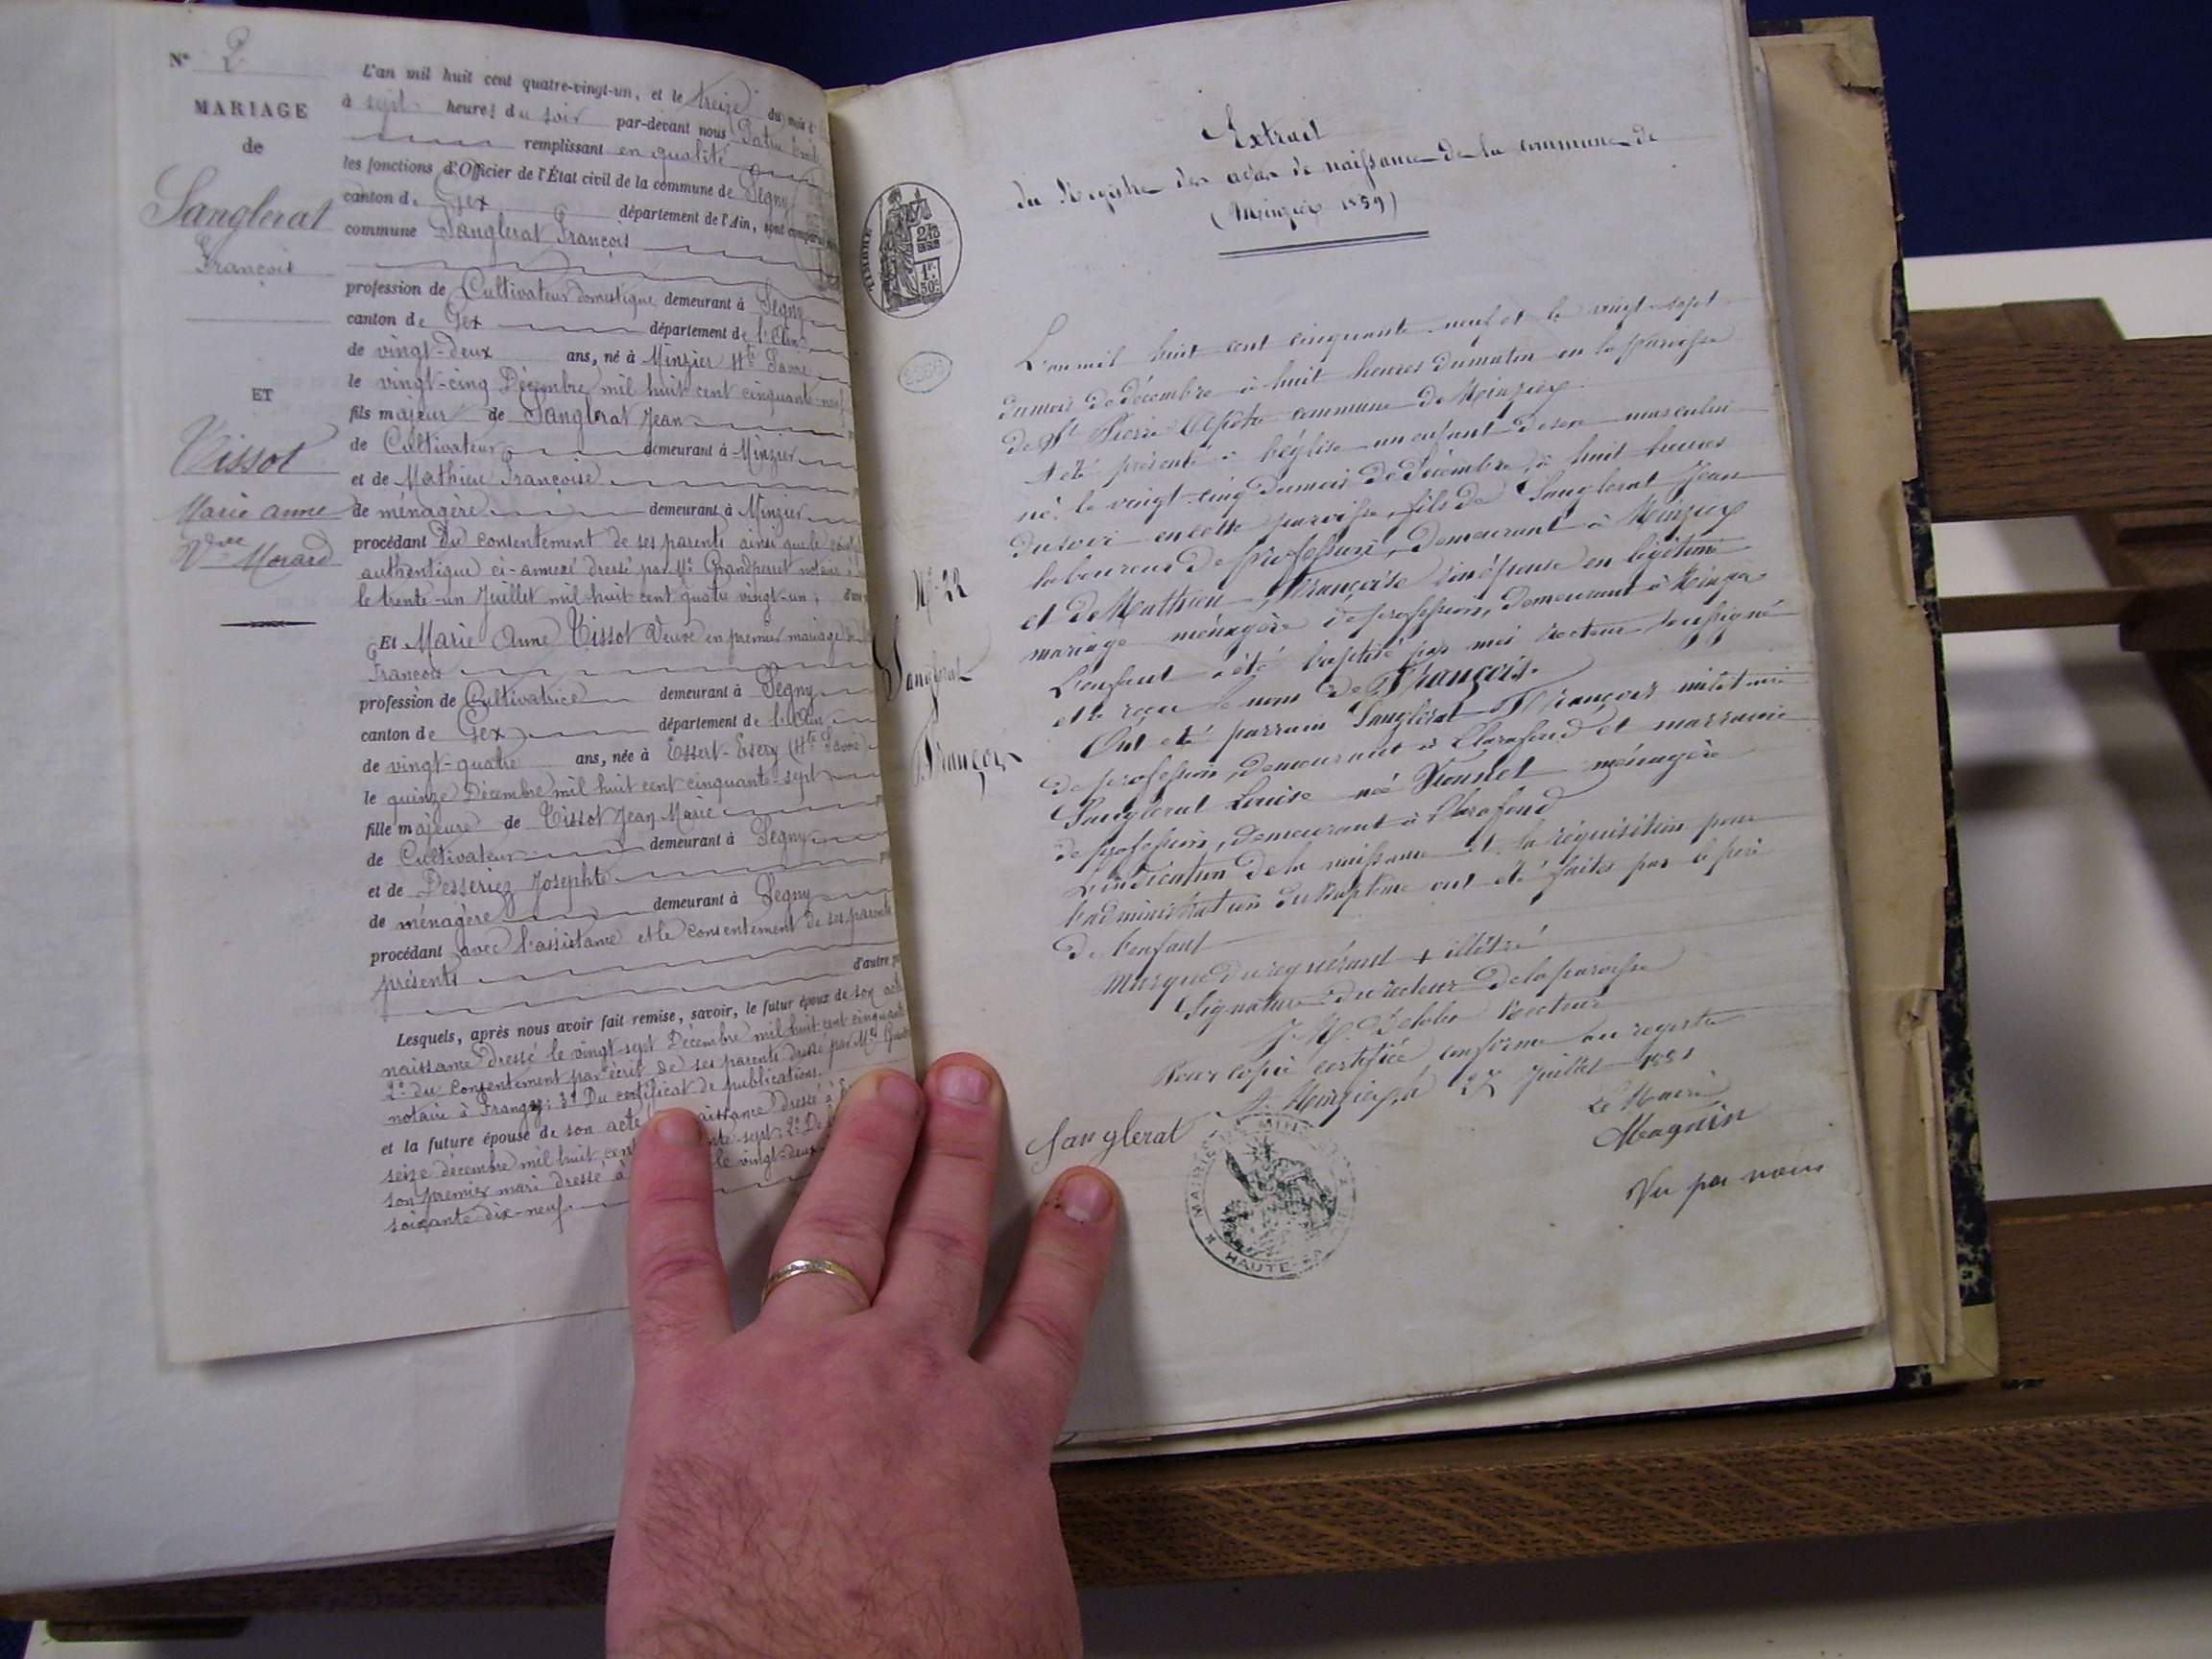 N° 2
MARIAGE
de
Sanglerat
François
ET
Tissot
Marie anne
Vve Morard
L'an mil huit cent quatre-vingt-un, et le treize du mois
à sept heures du soir par-devant nous
remplissant en qualité
les fonctions d'Officier de l'État civil de la commune de Segny
canton de Gex département de l'Ain, sont comparus
commune Sanglerat François
profession de Cultivateur domestique demeurant à Segny
canton de Gex département de l'Ain
de vingt-deux ans, né à Minzier Hte Savoie
le vingt-cinq Décembre mil huit cent cinquante-neuf
fils majeur de Sanglerat Jean
de Cultivateur demeurant à Minzier
et de Mathieu Françoise
de ménagère demeurant à Minzier
procédant du consentement de ses parents ainsi que le
authentique ci-annexé dressé par Me Grandperret notaire à
le trente-un Juillet mil huit cent quatre vingt-un;
Et Marie Anne Tissot Veuve en premier mariage de
François
profession de Cultivatrice demeurant à Segny
canton de Gex département de l'Ain
de vingt-quatre ans, née à Essert-Esery (Hte Savoie)
le quinze Décembre mil huit cent cinquante-sept
fille majeure de Tissot Jean Marie
de Cultivateur demeurant à Segny
et de Desseriez Josephte
de ménagère demeurant à Segny
procédant avec l'assistance et le consentement de ses parents
présents
d'autre
Lesquels, après nous avoir fait remise, savoir, le futur époux de son acte
naissance dressé le vingt-sept Décembre mil huit cent cinquante
2° du consentement par écrit de ses parents dressé par Me
notaire à Frangy; 3° Du certificat de publications.
et la future épouse de son acte naissance dressé à
seize décembre mil huit cent 2° De
son premier mari dressé à le vingt-deux
soixante dix-neuf
Extrait
du Registre des actes de naissance de la commune de
(Minzier 1859)
TIMBRE
1F.
50c
No 22
Sanglerat
François
L'an mil huit cent cinquante neuf et le vingt-sept
du mois de décembre à huit heures du matin en la paroisse
de St Pierre commune de Minzier
a été présenté à l'église un enfant de sexe masculin
né le vingt-cinq du mois de Décembre, à huit heures
du soir en cette paroisse, fils de Sanglerat Jean
laboureur de profession, demeurant à Minzier
et de Mathieu Françoise son épouse en légitime
mariage ménagère de profession, demeurant à Minzier
L'enfant a été baptisé par moi recteur soussigné
et a reçu le nom de François.
Ont été parrain Sanglerat François militaire
de profession, demeurant à Clarafond et marraine
Sanglerat Louise née Vionnet ménagère
de profession, demeurant à Clarafond
L'indication de la naissance et la réquisition pour
l'administration du Baptême ont été faites par le père
de l'enfant
Marque du requérant + illétré
Signature du recteur de la paroisse
Recteur
Pour copie certifiée conforme au registre
A Minzier, le 27 Juillet 1881
Le Maire
Magnin
Sanglerat
MAIRIE DE MINZIER
HAUTE-SA
Vu par nous